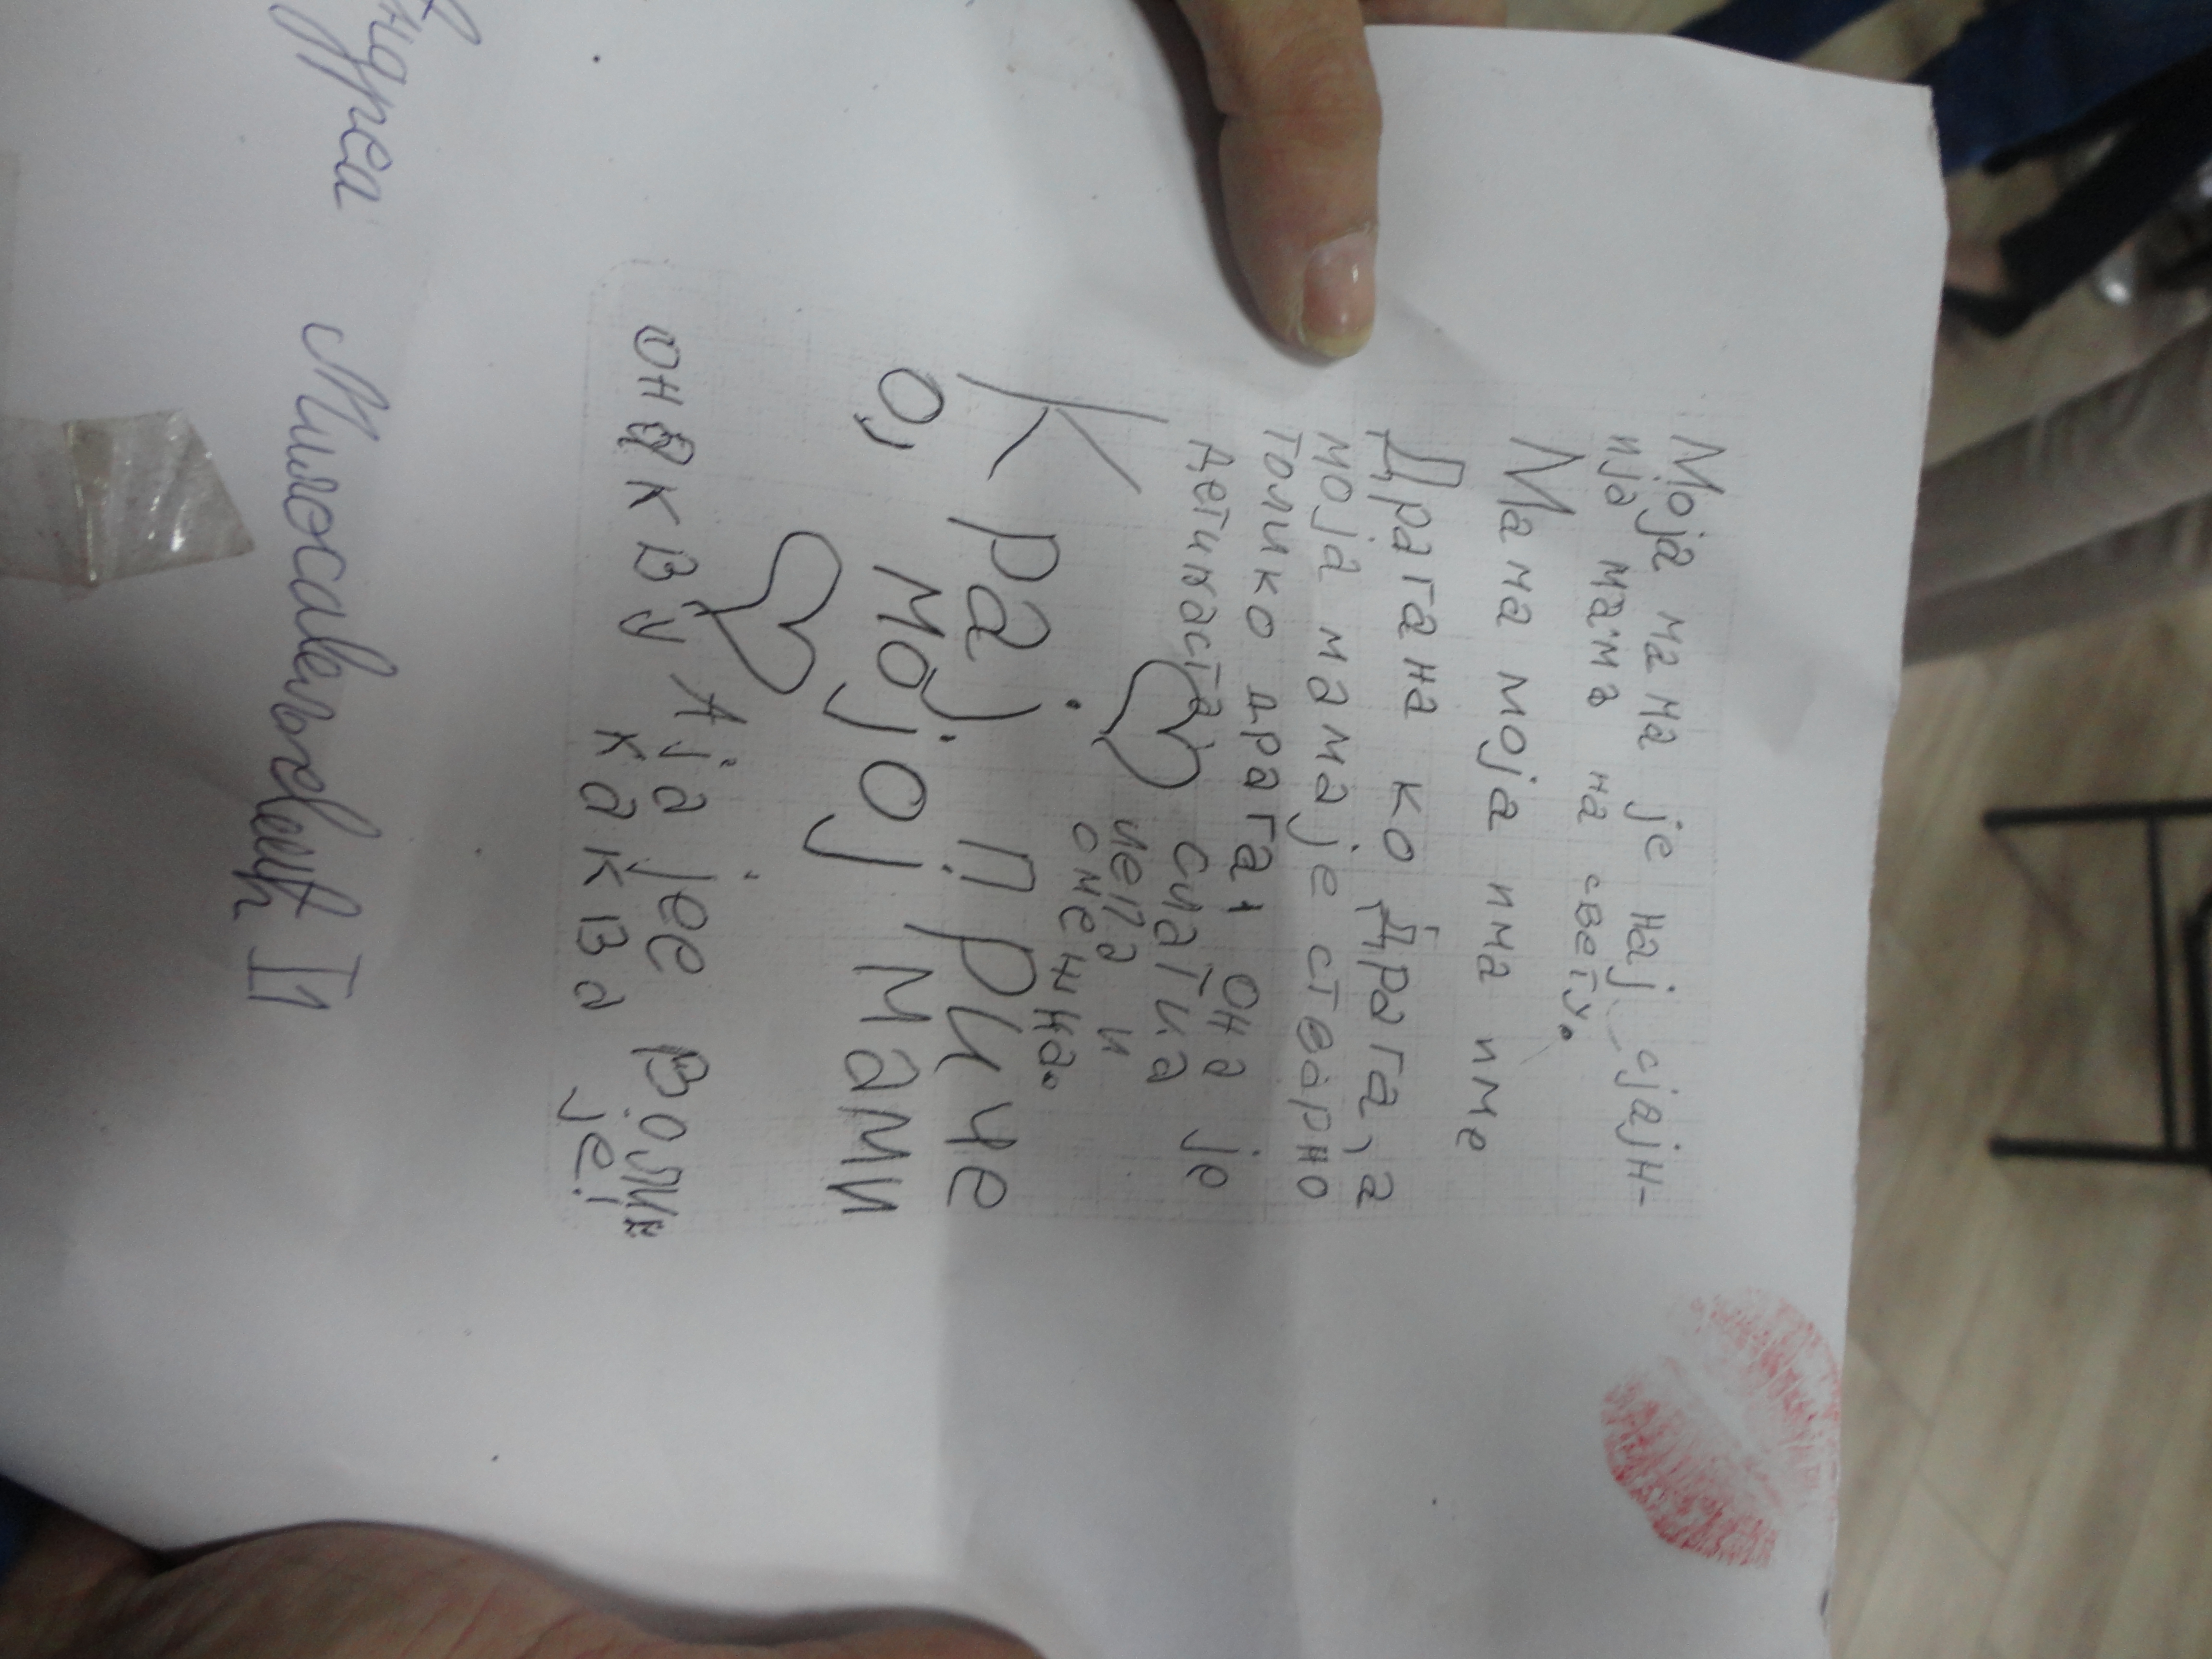 Моја мама је нај сјајн-
ија мама на свету.
Мама моја има име
Драгана ко Драга, а
моја мама је стварно
толико драга, она је
детињаста, сматла
лепа и
смешна.
Крај приче
о, мојој мами
А ја је волим
онакву
каква је!
ндреа Милосављевић I1